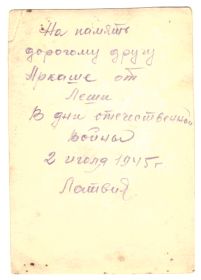 На память
дорогому другу
Аркаше от
Леши
В дни отечественной
войны
2 июля 1945 г
Латвия